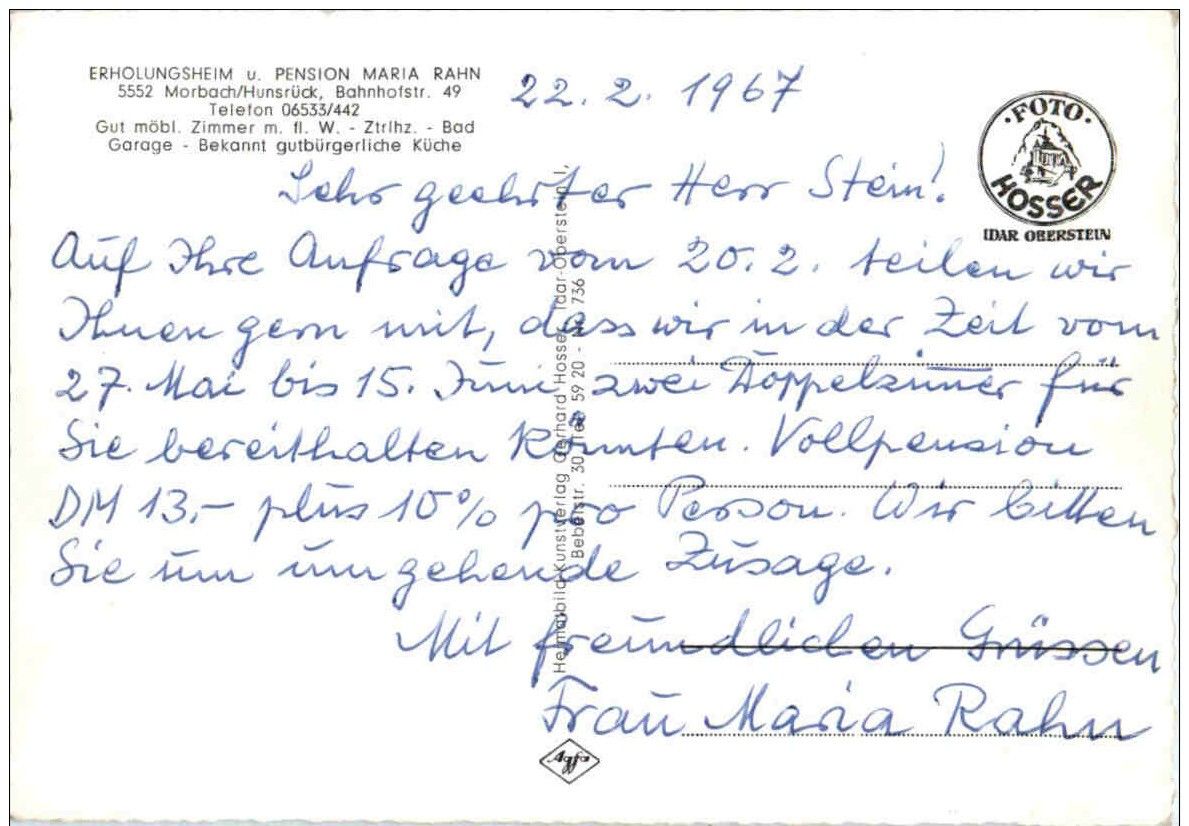 ERHOLUNGSHEIM u. PENSION MARIA RAHN
5552 Morbach/Hunsrück, Bahnhofstr. 49
Telefon 06533/442
Gut möbl. Zimmer m. fl. W. - Ztrlhz. - Bad
Garage - Bekannt gutbürgerliche Küche
22. 2. 1967
·FOTO·
HOSSER
IDAR OBERSTEIN
Sehr geehrter Herr Stein!
Auf Ihre Anfrage vom 20. 2. teilen wir
Ihnen gern mit, dass wir in der Zeit vom
27. Mai bis 15. Juni zwei Doppelzimer für
Sie bereithalten könnten. Vollpension
DM 13,- plus 10% pro Person. Wir bitten
Sie um umgehende Zusage.
Mit freundlichen Grüssen
Frau Maria Rahn
Heimatbild-Kunstverlag Gerhard Hosser, Idar-Oberstein 1,
59 20 - 736
Agfa